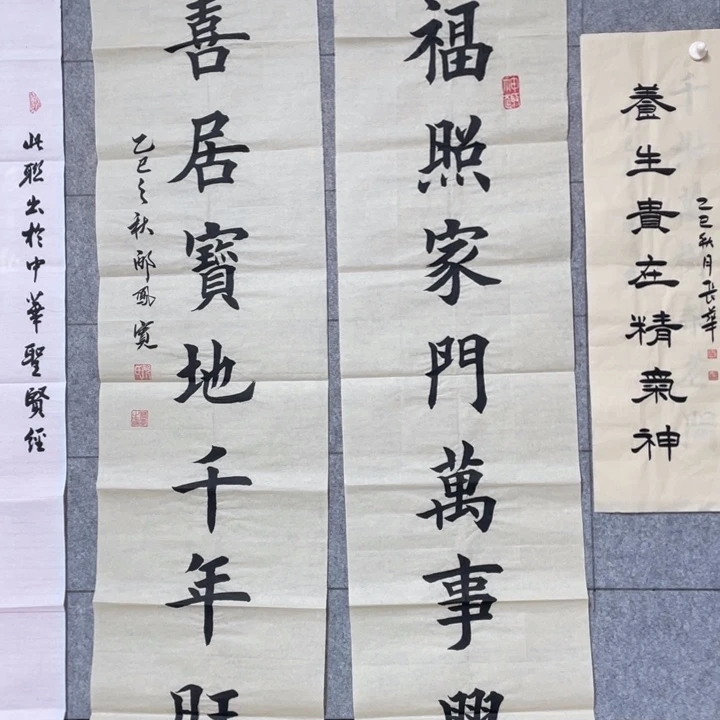 養生貴在精氣神
乙巳秋月長華
福照家門萬事興
喜居寶地千年旺
乙巳之秋邴鳳寬
此聯出於中華聖賢經